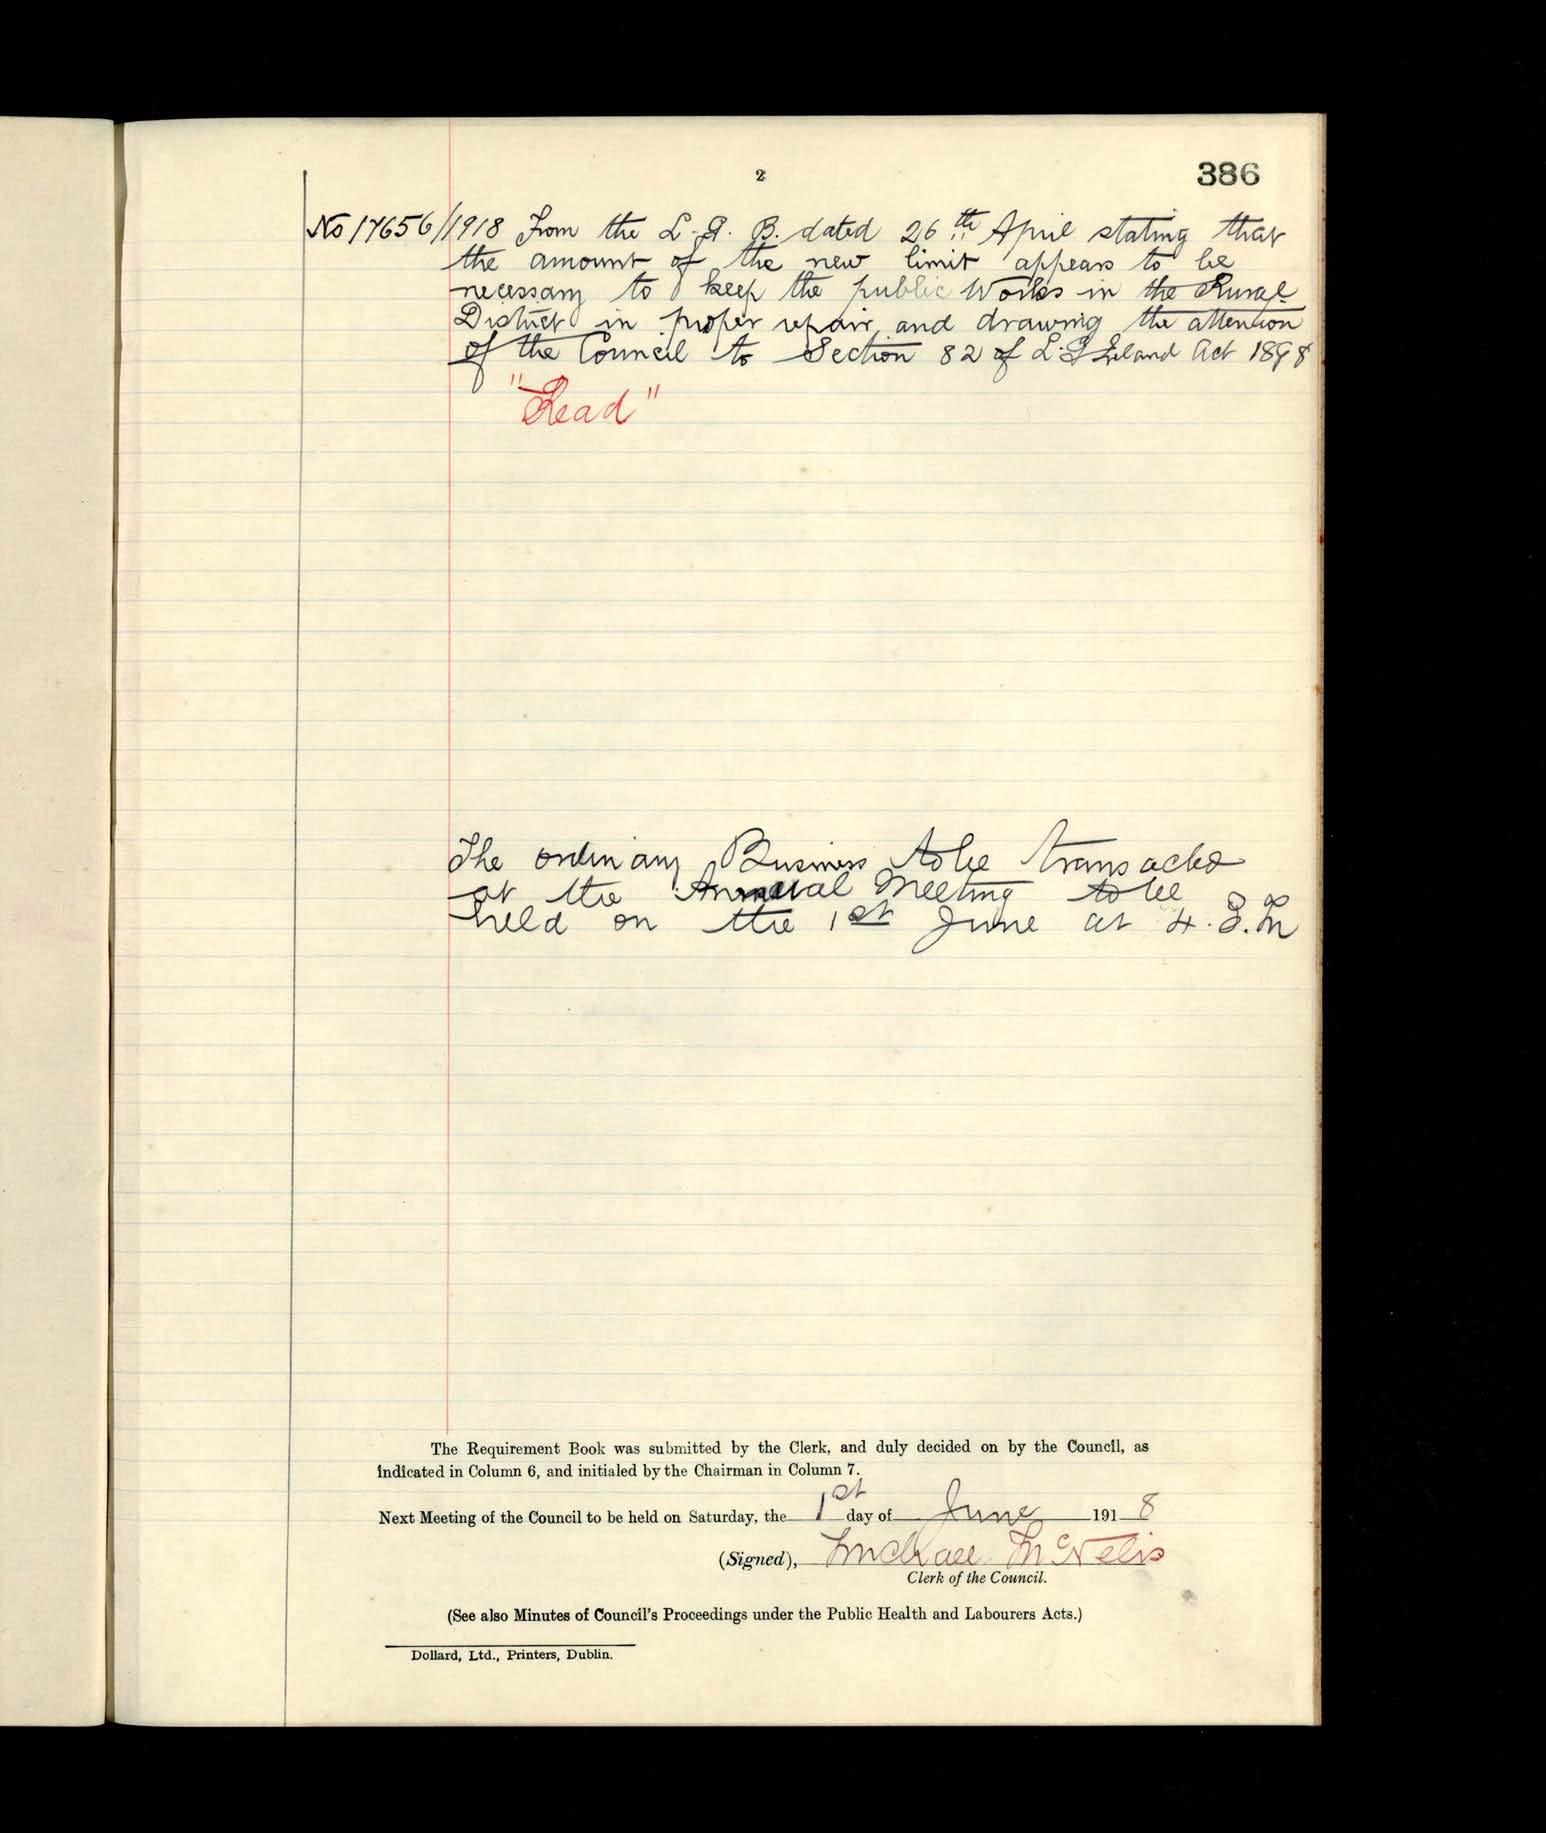 2
386
No 17656/1918 From the L. G. B. dated 26th April stating that
the amount of the new limit appears to be
necessary to keep the public Works in the Rural
District in proper repair, and drawing the attention
of the Council to Section 82 of L. G Ireland Act 1898
"Read"
The ordinary Business to be transacted
at the Annual Meeting to be
held on the 1st June at 4. S. M
The Requirement Book was submitted by the Clerk, and duly decided on by the Council, as
indicated in Column 6, and initialed by the Chairman in Column 7.
Next Meeting of the Council to be held on Saturday, the 1st day of June 1918
(Signed), Michael McNelis
Clerk of the Council.
(See also Minutes of Council's Proceedings under the Public Health and Labourers Acts.)
Dollard, Ltd., Printers, Dublin.